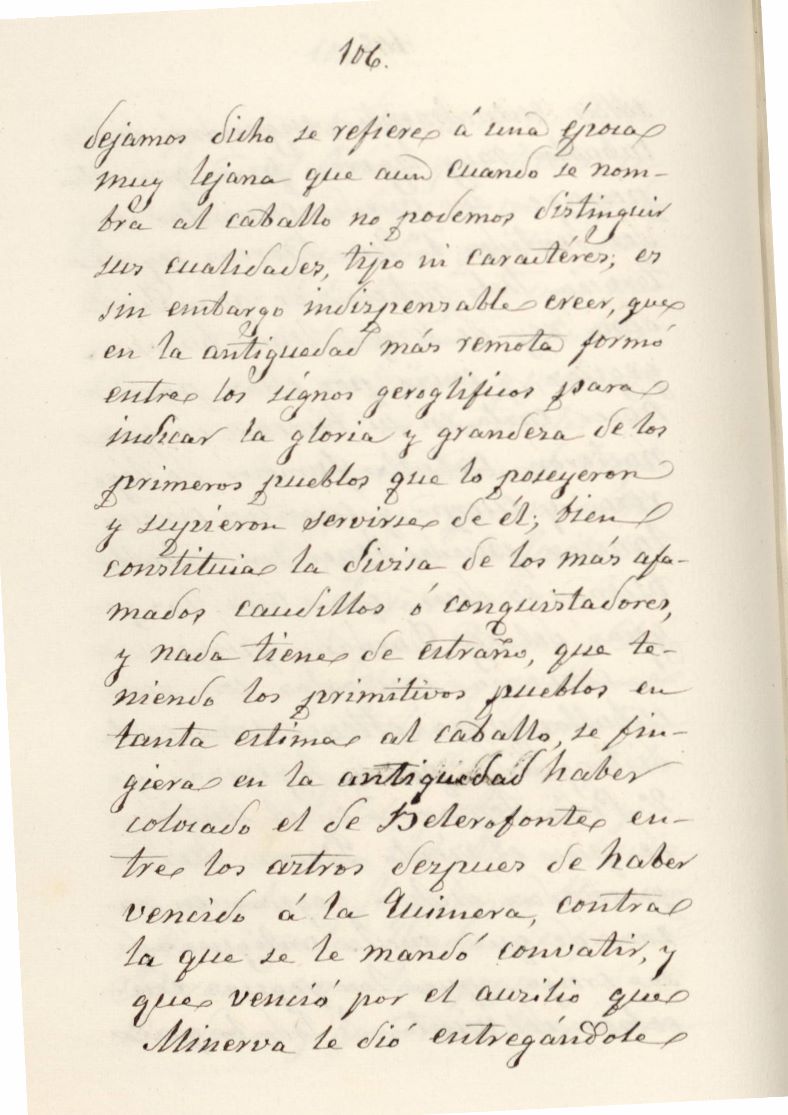 106.
dejamos dicho se refiere á una época
muy lejana que aun cuando se nom-
bra al caballo no podemos distinguir
sus cualidades, tipo ni caractéres; es
sin embargo indizpensable creer, que
en la antiguedad más remota formó
entre los signos geroglificos para
indicar la gloria y grandeza de los
primeros pueblos que lo poseyeron
y supieron servirse de él; bien
constituia la divisa de los más afa-
mados caudillos ó conquistadores,
y nada tiene de estraño, que te-
niendo los primitivos pueblos en
tanta estima al caballo, se fin-
giera en la antiguedad haber
colocado el de Belerofonte en-
tre los aztros dezpues de haber
vencido á la Quimera, contra
la que se le mandó convatir, y
que venció por el auxilio que
Minerva le dió entregándole